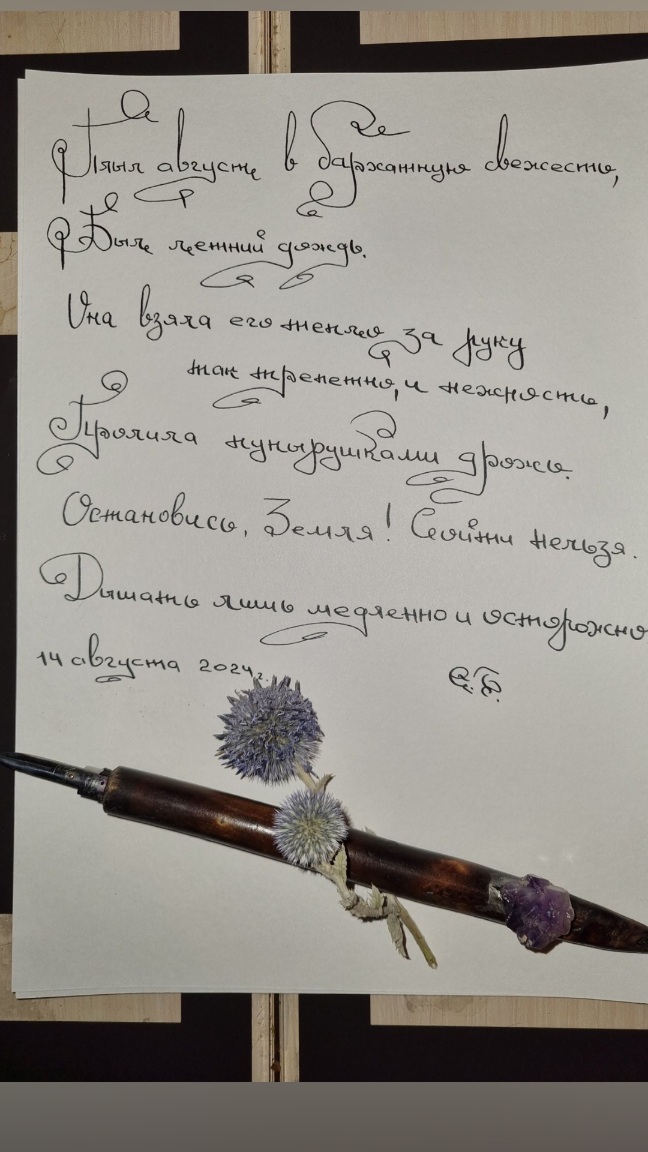 Плыл август в бархатную свежесть,
Был летний дождь.
Она взяла его тепло за руку
так трепетно, и нежность,
Пролила мурашками дрожь.
Остановись, Земля! Сойти нельзя.
Дышать лишь медленно и осторожно
14 августа 2024 г.
Е.Б.